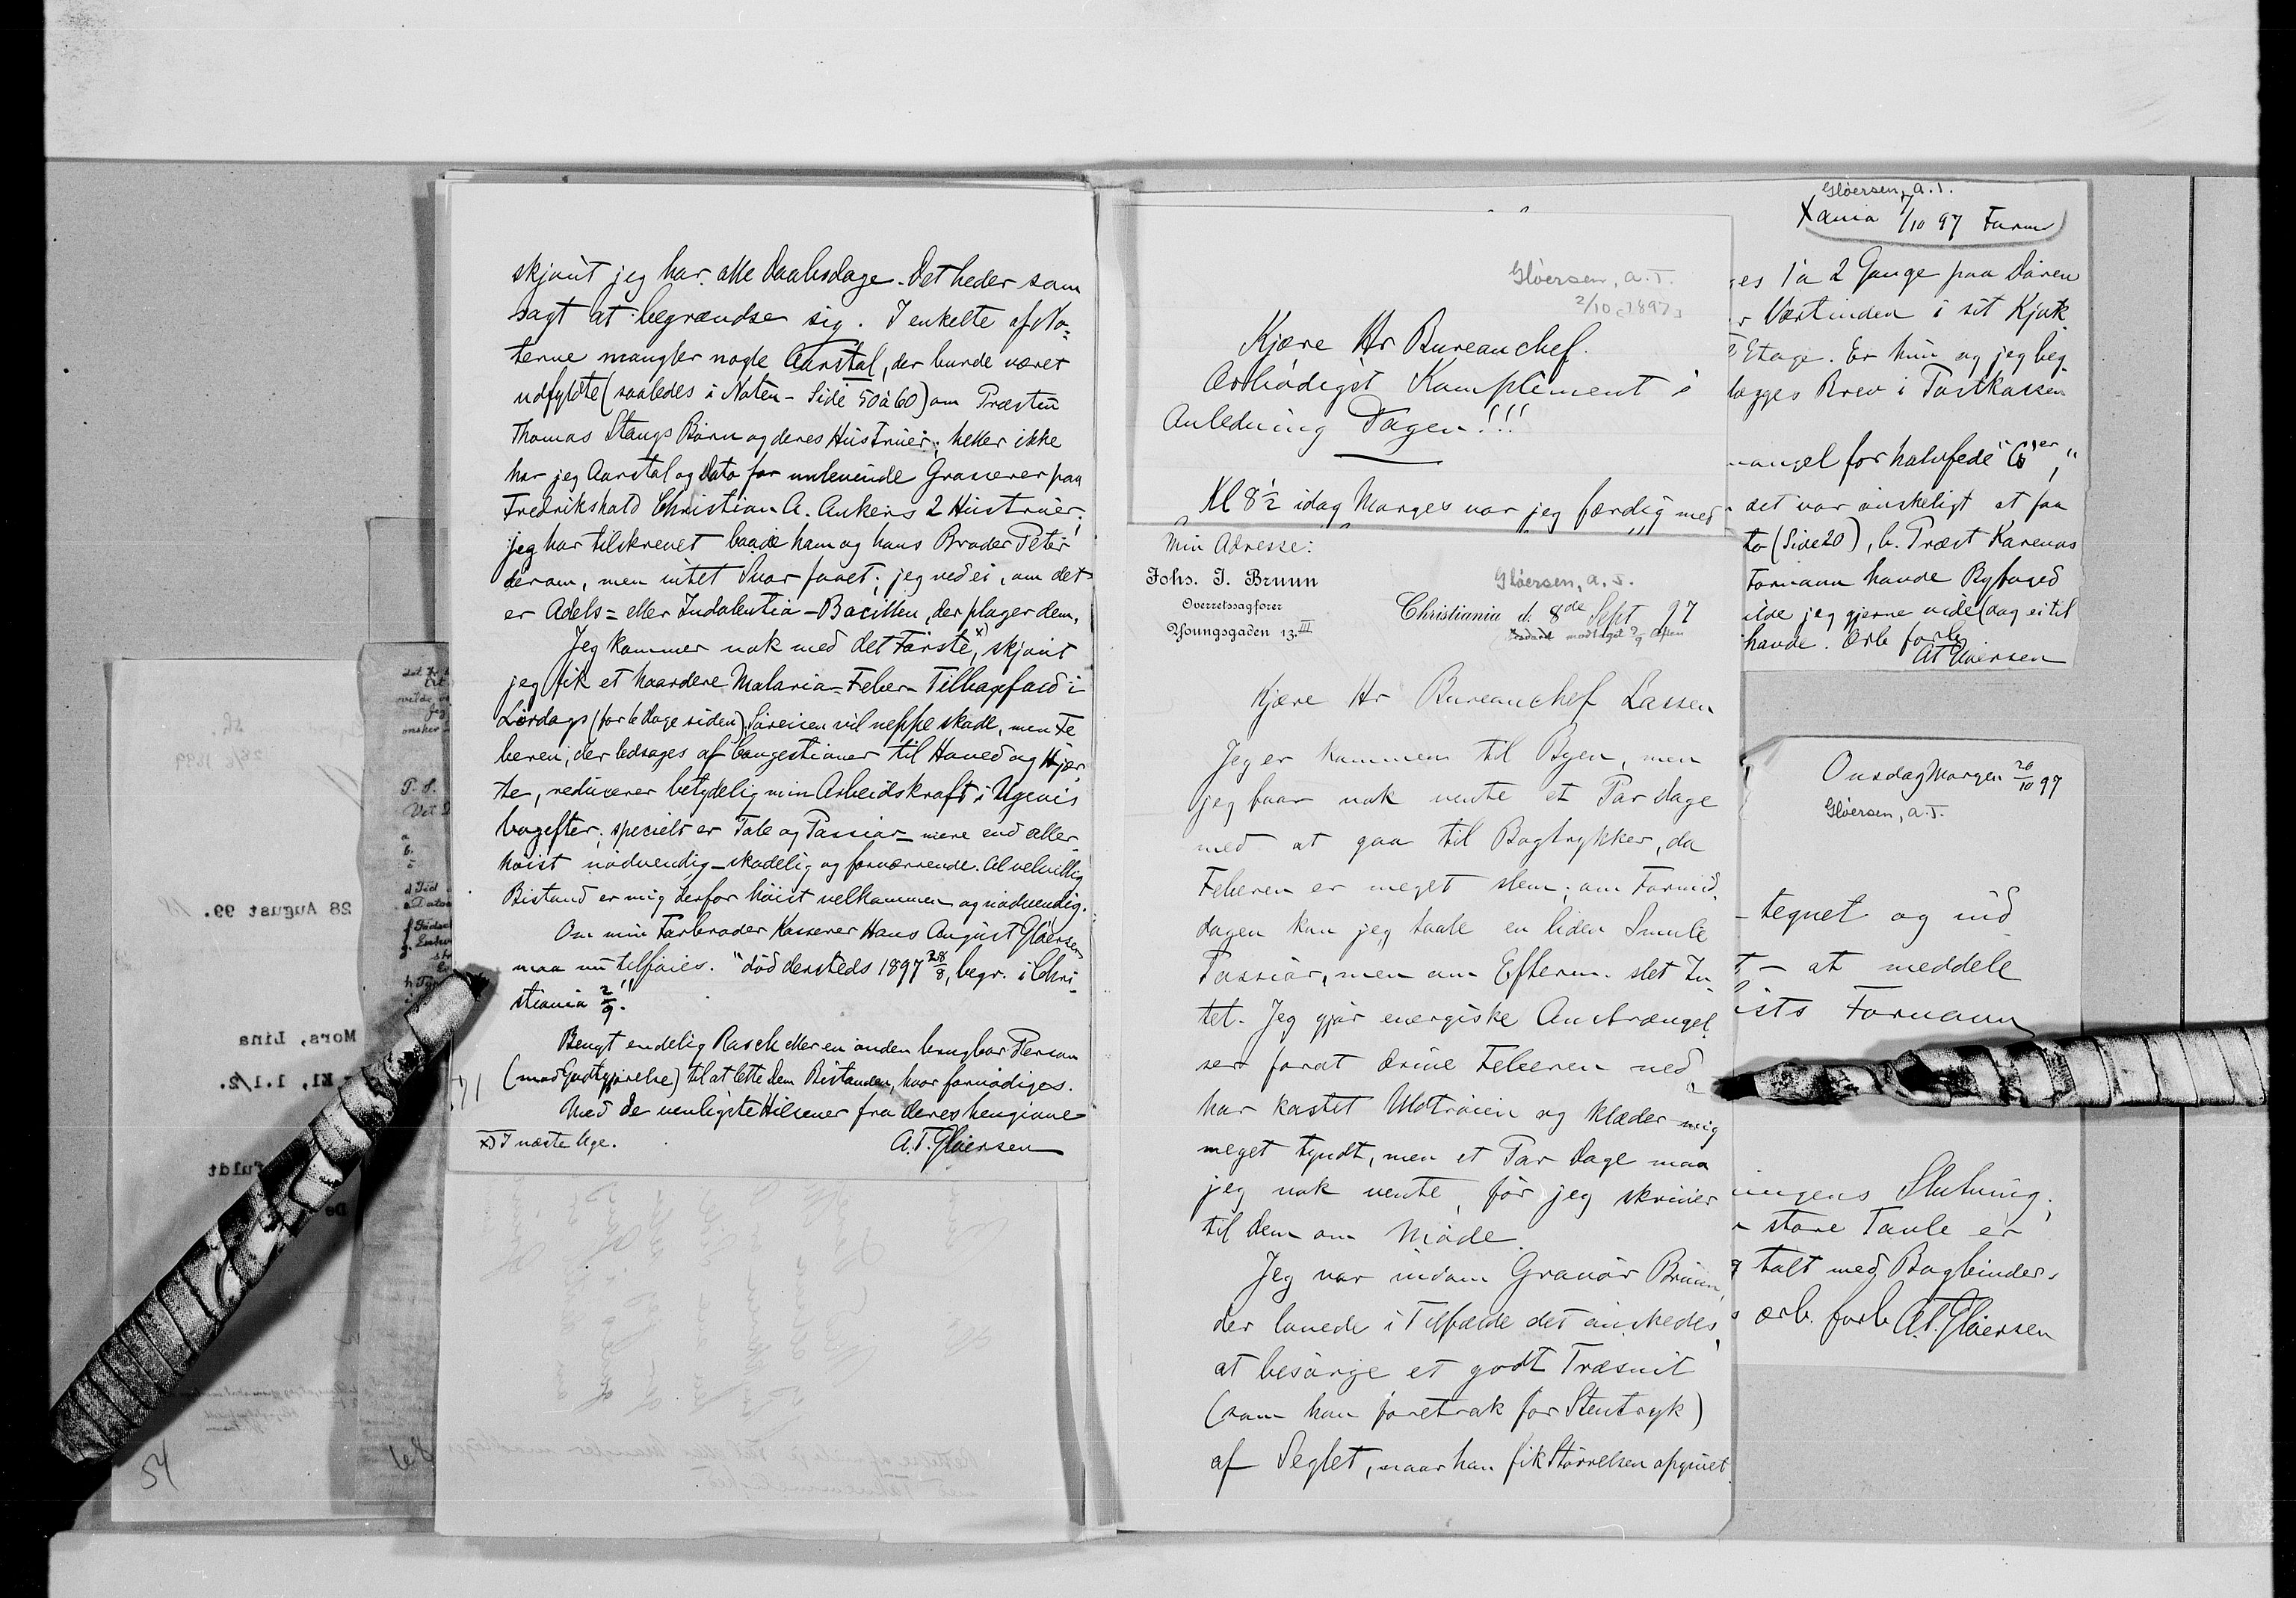 skjønt jeg har alle Daabsdage. Det heder som
sagt at begrændse sig. I enkelte af No-
terne mangler nogle Aarstal, der burde været
udfyldte (saaledes i Noten - Side 50 à 60) om Præsten
Thomas Stangs Børn og deres Hustruer; heller ikke
har jeg Aarstal og Dato for unlevende Grosserer paa
Fredrikshald Christian A. Ankers 2 Hustruer;
jeg har tilskrevet baade ham og hans Broder Peter
derom, men intet Svar faaet; jeg ved ei, om det
er Adels- eller Indolentia-Bacillen, der plager dem.
Jeg kommer nok med det Første x), skjønt
jeg fik et haardere Malaria-Feber-Tilbagefald i
Lørdags (for 6 Dage siden). Søreisen vil neppe skade, men Fe
beren, der ledsages af Congestioner til Hoved og Hjer
te, reducerer betydelig min Arbeidskraft i Ugevis
bagefter; specielt er Tale og Passiar - mere end aller-
høist nødvendig - skadelig og forværrende. Al velvillig
Bistand er mig derfor høist velkommen og nødvendig.
Om min Farbroder Kasserer Hans August Gløersen
maa nu tilføies: "død dersteds 1897 28/8, begr. i Chri-
stiania 2/9."
Bengt endelig Rasch eller en anden brugbar Person
(mod Godtgjørelse) til at lette Dem Bistanden, hvor fornødiges.
Med de venligste Hilsener fra Deres hengivne
x) I næste Uge.
A.T. Gløersen
Gløersen, A.T.
2/10 [1897]
Kjære Hr Bureauchef.
Ærbødigst Kompliment i
Anledning Dagen!!!
Kl 8½ idag Morges var jeg færdig med
Min Adresse:
Johs. J. Bruun
Overretssagfører
Youngsgaden 13.III
Gløersen, A.T.
Christiania d. 8de Sept 97
modtaget 9/9 Aften
Kjære Hr Bureauchef Lassen
Jeg er kommen til Byen, men
jeg faar nok vente et Par Dage
med at gaa til Bogtrykker, da
Feberen er meget slem; om Formid
dagen kan jeg taale en liden Smule
Passiar, men om Efterm. slet In-
tet. Jeg gjør energiske Anstrængel
ser forat drive Feberen ned,
har kastet Uldtrøien og klæder mig
meget tyndt, men et Par Dage maa
jeg nok vente, før jeg skriver
til Dem om Møde.
Jeg var indom Gravør Bruun,
der lovede i Tilfælde det ønskedes,
at besørge et godt Træsnit
(som han foretrak for Stentryk)
af Seglet, naar han fik Størrelsen opgivet
Gløersen, A.T.
Xania 1/10 97 Form
ges 1 à 2 Gange paa Døren
r Værtinden i sit Kjøk
2 Etage. Er hun og jeg beg
lægges Brev i Postkassen
mangel for halvfede "6'er",
det var ønskeligt at faa
to (Side 20), b. Præst Karenas
Fornavn havde Byfoged
ilde jeg gjerne vide (dog ei til
havde. Ærb forb
AT Gløersen
Onsdag Morgen 20/10 97
Gløersen, A.T.
tegnet og ind
T - at meddele
ists Fornavn
ingens Slutning;
n store Tavle er
g talt med Bogbinder
s ærb. forb A.T. Gløersen
28 August 99.
Mors, Lina
Kl, 1.1/2.
fuldt
De
P.S.
54
68